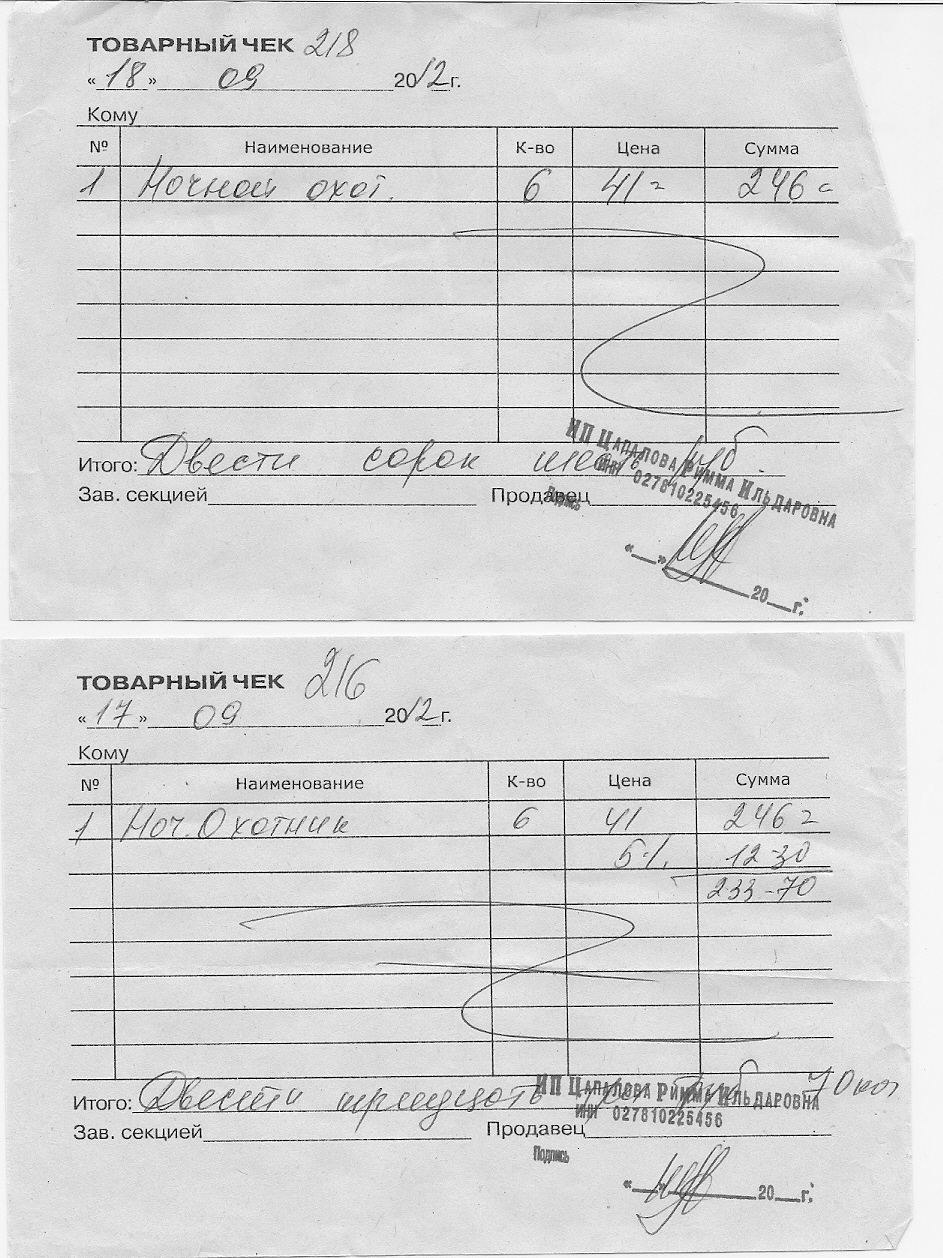 ТОВАРНЫЙ ЧЕК 218
« 18 » 09 2012 г.
Кому
№ Наименование К-во Цена Сумма
1 Ночной охот. 6 41= 246=
Итого: Двести сорок шесть руб.
Зав. секцией Продавец
ИП Цапалова Римма Ильдаровна
ИНН 027810225456
Подпись
« » 20 г.
ТОВАРНЫЙ ЧЕК 216
« 17 » 09 2012 г.
Кому
№ Наименование К-во Цена Сумма
1 Ноч. Охотник 6 41 246=
5% 12-30
233-70
Итого: Двести тридцать руб 70 коп
Зав. секцией Продавец
ИП Цапалова Римма Ильдаровна
ИНН 027810225456
Подпись
« » 20 г.